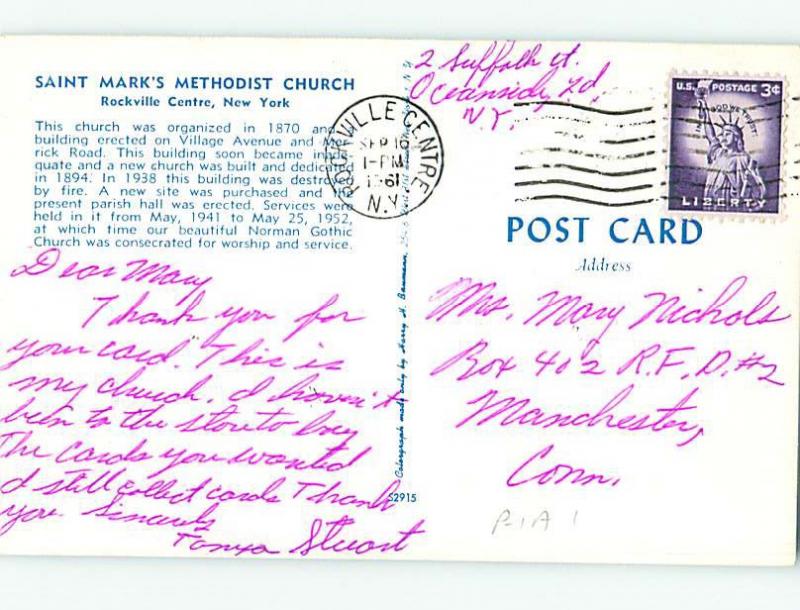 SAINT MARK'S METHODIST CHURCH
Rockville Centre, New York
This church was organized in 1870 and
building erected on Village Avenue and Mer
rick Road. This building soon became in
quate and a new church was built and dedic
in 1894. In 1938 this building was destroyed
by fire. A new site was purchased and the
present parish hall was erected. Services were
held in it from May, 1941 to May 25, 1952,
at which time our beautiful Norman Gothic
Church was consecrated for worship and service.
Dear Mary
Thank you for
your card. This is
my church. I haven't
been to the store to buy
the cards you wanted
I still collect cards Thank
you. Sincerely
Tanya Stuart
Colorgraph made only by Harry H. Baumann,
S2915
ROCKVILLE CENTRE
SEP 16
1-PM
1961
N.Y.
2 Suffolk ct.
Oceanside, Rd.
N.Y.
U.S. POSTAGE 3¢
IN GOD WE TRUST
LIBERTY
POST CARD
Address
Mrs. Mary Nichols
Box 402 R.F.D. #2
Manchester,
Conn.
P-1A 1